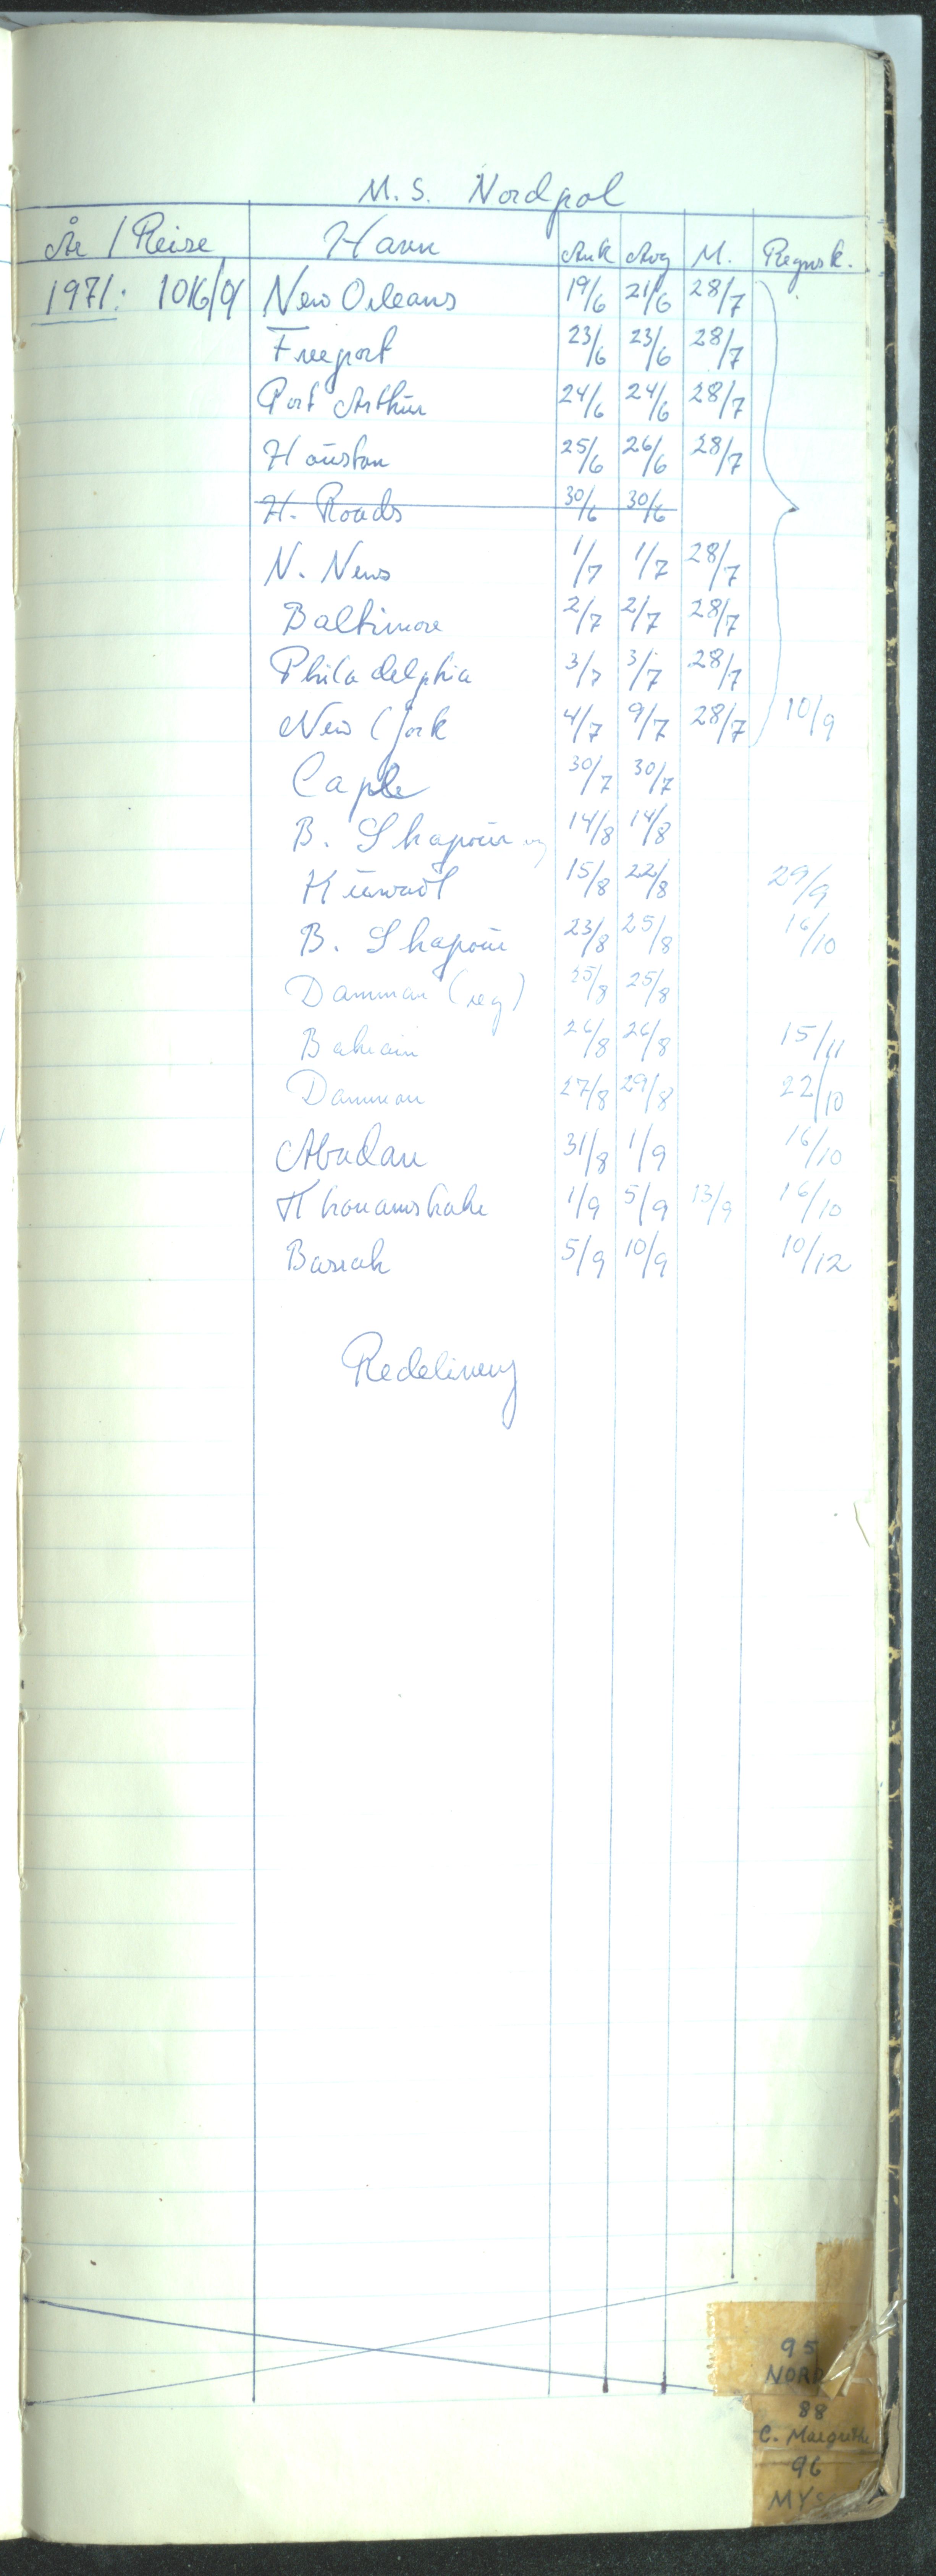 M. S. Nordpol
År / Reise Havn Ank Avg M. Regnsk.
1971: 1016/01 New Orleans 19/6 21/6 28/7
Freeport 23/6 23/6 28/7
Port Arthur 24/6 24/6 28/7
Houston 25/6 26/6 28/7
H. Roads 30/6 30/6
N. News 1/7 1/7 28/7
Baltimore 2/7 2/7 28/7
Philadelphia 3/7 3/7 28/7
New York 4/7 9/7 28/7 10/9
Cape 30/7 30/7
B. Shapour 14/8 14/8
Kuwait 15/8 22/8 29/9
B. Shapour 23/8 25/8 16/10
Damman (reg) 25/8 25/8
Bahrain 26/8 26/8 15/11
Damman 27/8 29/8 22/10
Abadan 31/8 1/9 16/10
Khoramshahr 1/9 5/9 13/9 16/10
Basrah 5/9 10/9 10/12
Redelivery
95
NORD
88
C. Margrethe
96
MYS